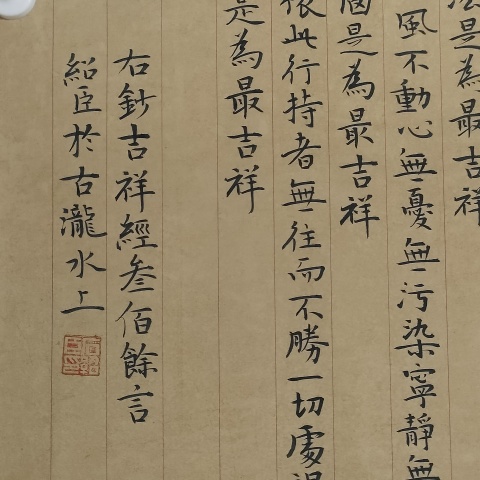 是為最吉祥
風不動心無憂無污染寧靜無
是為最吉祥
依此行持者無往而不勝一切處
是為最吉祥
右鈔吉祥經叁佰餘言
紹臣於古瀧水上